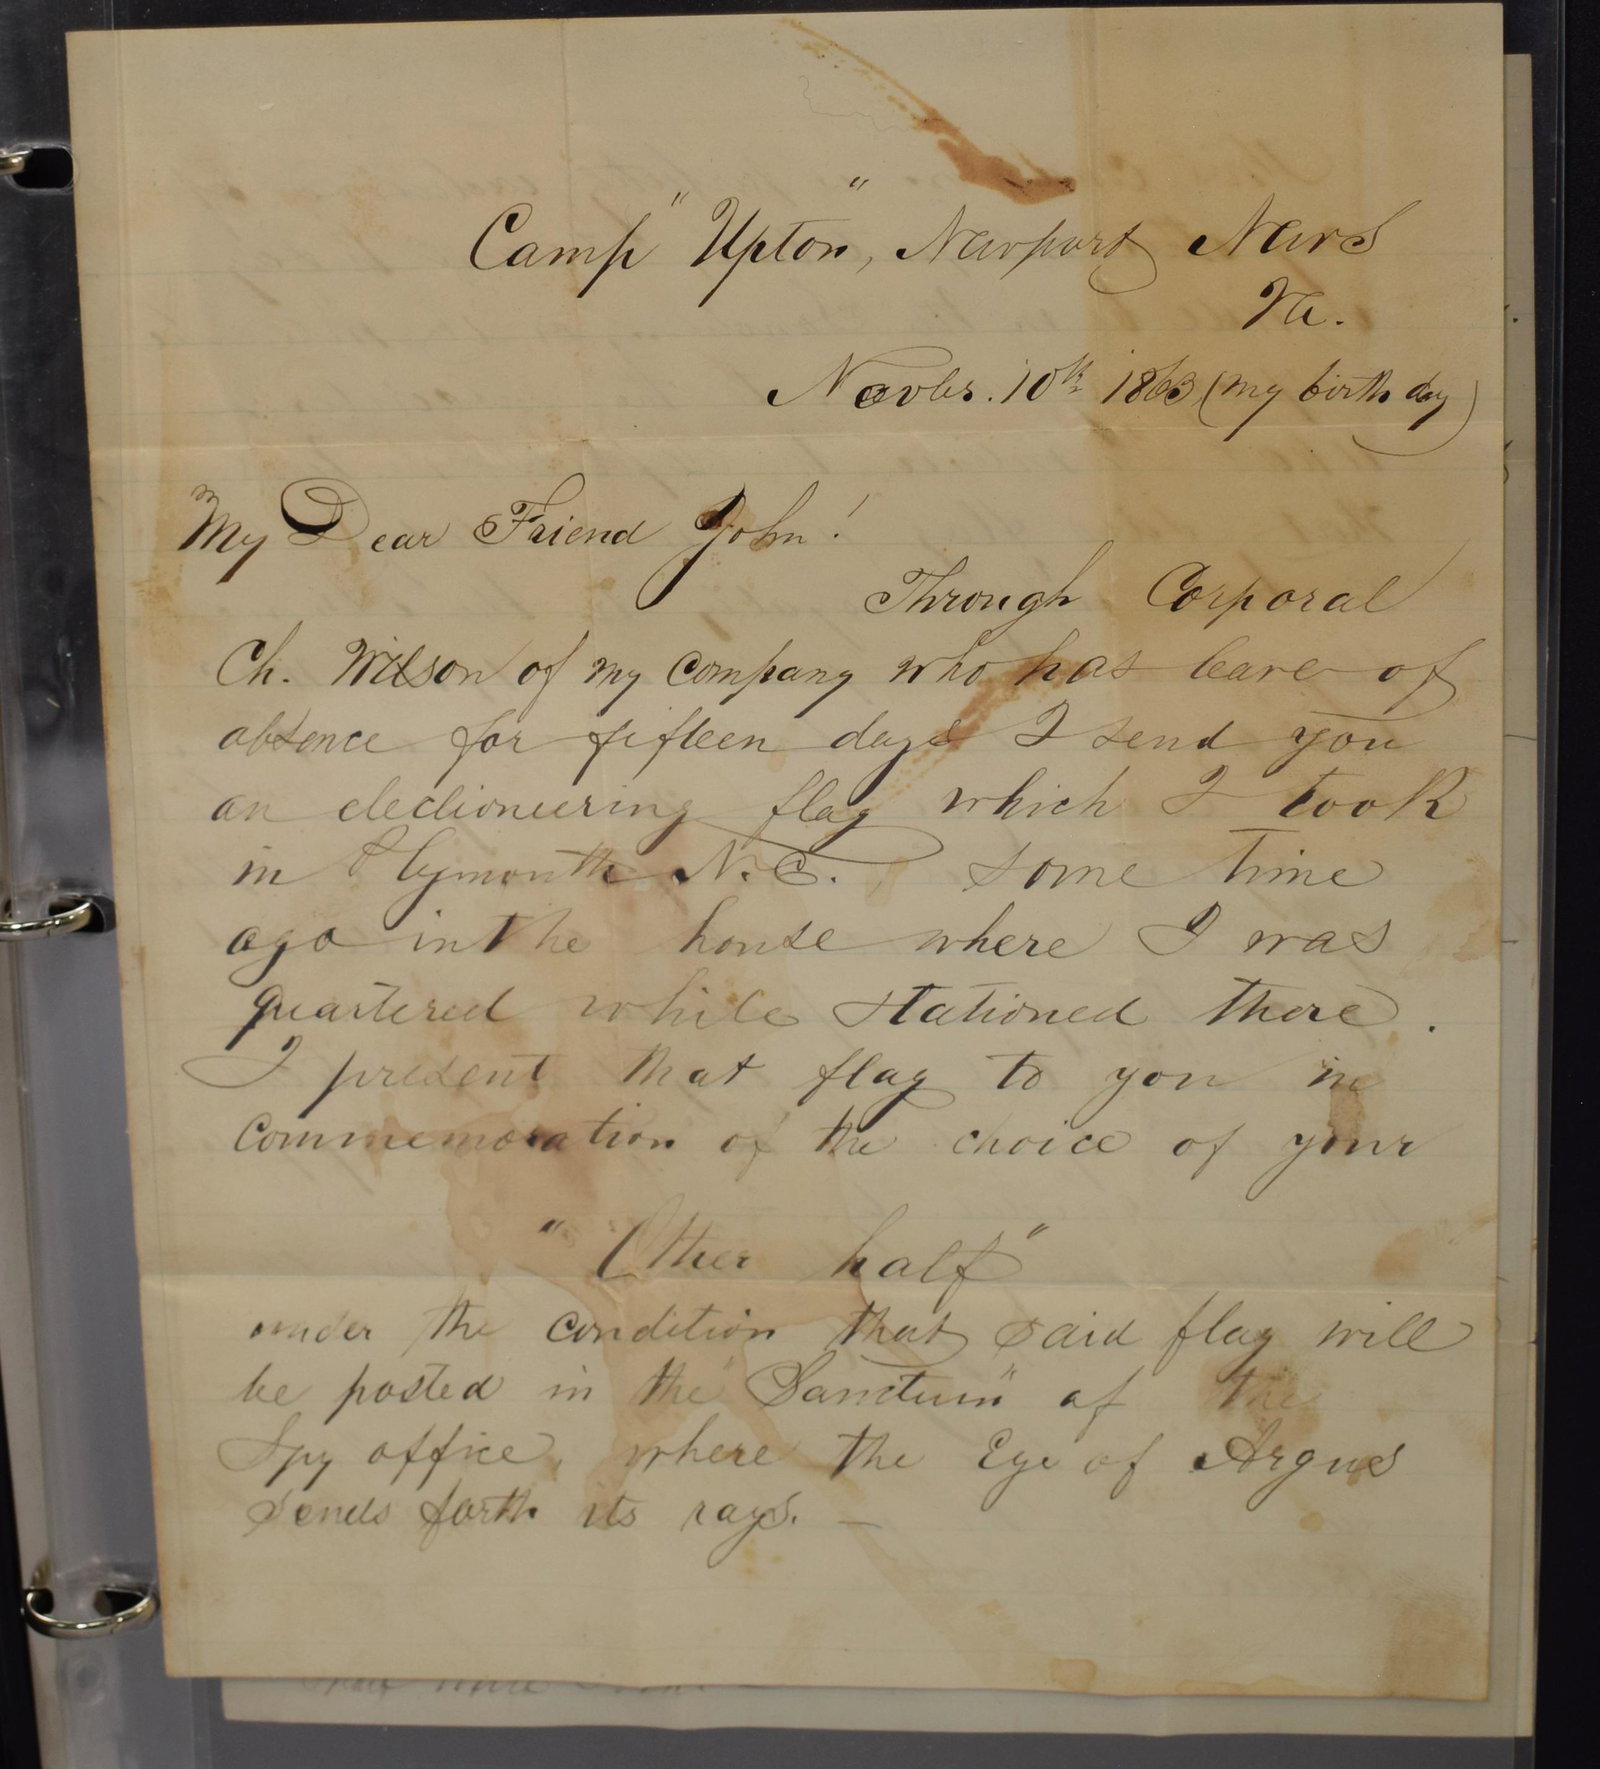 Camp "Upton", Newport News
Va.
Novbr. 10th 1863 (my birth day)
My Dear Friend John!
Through Corporal
Ch. Wilson of my company who has leave of
absence for fifteen days I send you
an electioneering flag which I took
in Plymouth N.C. some time
ago in the house where I was
quartered while stationed there.
I present that flag to you in
commemoration of the choice of your
"Other half"
under the condition that said flag will
be posted in the "Sanctum" of the
Spy office, where the Eye of Argus
sends forth its rays. —